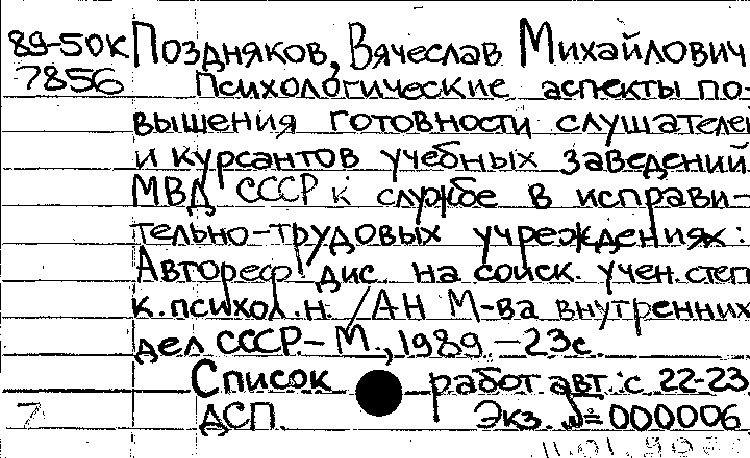 89-50К Поздняков, Вячеслав Михайлович
7856 Психологические аспекты по-
вышения готовности слушателей
и курсантов учебных заведений
МВД СССР к службе в исправи-
тельно-трудовых учреждениях:
Автореф. дис. на соиск. учен. степ
к.психол.н. /АН М-ва внутренних
дел СССР.- М., 1989. -23с.
Список работ авт.: с 22-23
7 ДСП. Экз. №=000006